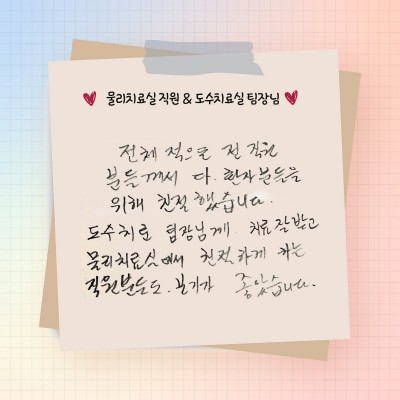 물리치료실 직원 & 도수치료실 팀장님
전체적으로 전 직원
분들께서 다. 환자분들을
위해 친절했습니다.
도수치료 팀장님께 치료 잘 받고
물리치료실에서 친절하게 하는
직원분들도. 보기가 좋았습니다.